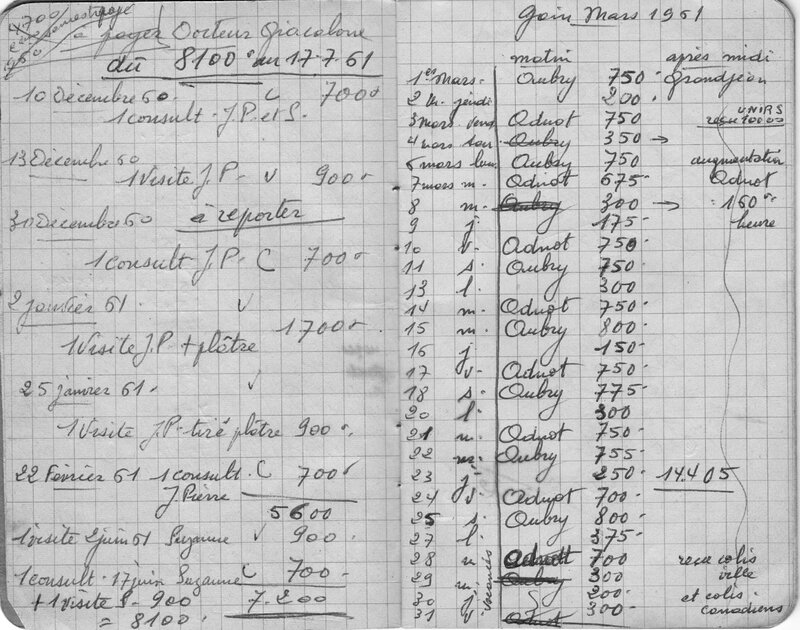 à payer Docteur Giacalone
dû 8100 au 17.7.61
10 Décembre 60. C 700
1 consult. J.P. et S.
13 Décembre 60
1 Visite J.P. v 900
30 Décembre 60 à reporter
1 consult J.P. C 700
2 janvier 61. v
1700
1 Visite J.P. + plâtre
25 janvier 61. v
1 Visite J.P. tiré plâtre 900
22 Février 61 1 consult. C 700
J Pierre
5600
1 visite 2 juin 61 Suzanne v 900
1 consult. 17 juin Suzanne C 700
+ 1 visite S. 900 7.200
= 8100.
Gain Mars 1961
matin après midi
1er Mars. Aubry 750 Grandjean
2 jeudi 200
3 mars ven Adnot 750 UNIRS reçu 10000
4 mars sam Aubry 350 →
6 mars lun Aubry 750 augmentation
7 mars m. Adnot 675 Adnot
8 m. Aubry 300 → 150
9 j. 175 heure
10 v. Adnot 750
11 s. Aubry 750
13 l. 300
14 m. Adnot 750
15 m. Aubry 800
16 j. 150
17 v. Adnot 750
18 s. Aubry 775
20 l. 300
21 m. Adnot 750
22 m. Aubry 755
23 j. 250 14.405
24 v. Adnot 700
25 s. Aubry 800
27 l. 375
28 m vacances Adnot 700 reçu colis
29 m. Aubry 300 ville
30 j. 200 et colis
31 v. Adnot 300 canadiens